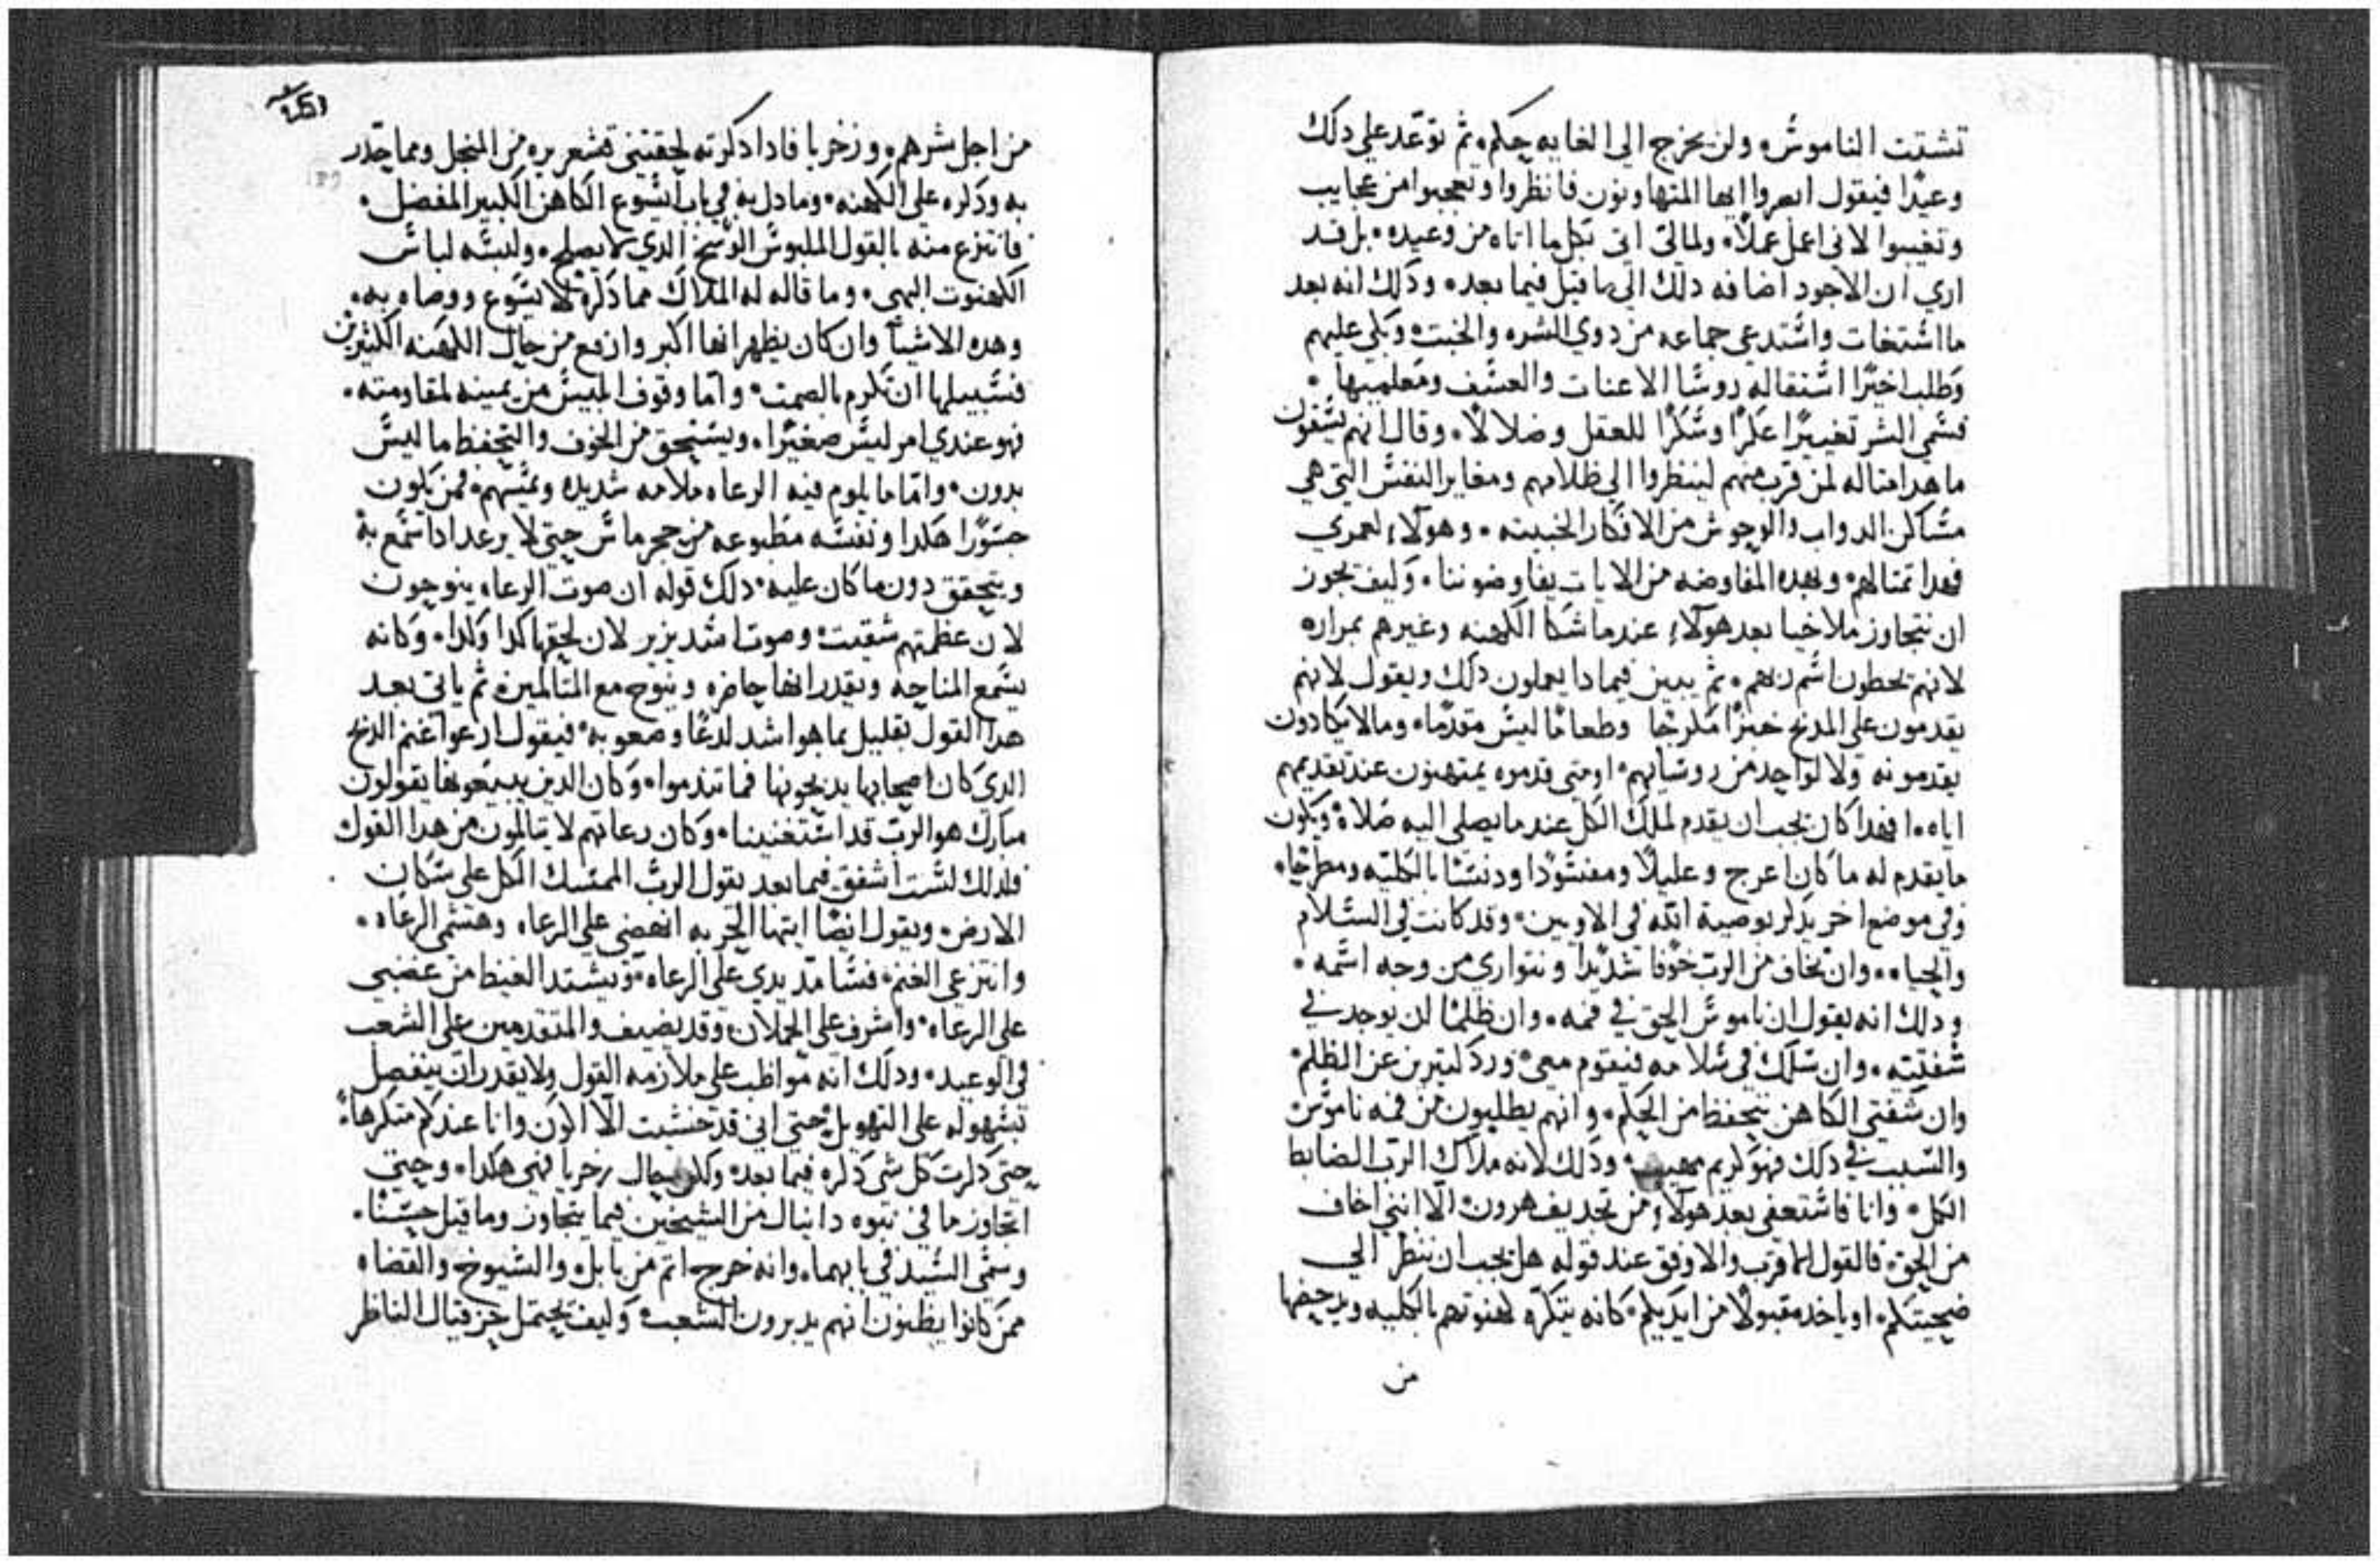 تشتت الناموس. ولن يخرج الى الغايه حكم. ثم توعد على دلك
وعيدًا فيقول ابصروا ايها المتهاونون فانظروا وتعجبوا من عجايب
وتغيبوا لانى اعمل عملًا. اتى بكل ما اتاه من وعيده. بل قد
ارى ان الاجود اضافه دلك الى ما قيل فيما بعد. ودلك انه بعد
ما استغات واستدعى جماعه من دوي الشره والخبت. وبكى عليهم
وطلب اخيرًا روسا الاعنات والعسف ومعلميها.
فسمى الشر تغييرًا عكرًا وسكرًا للعقل وضلالًا. وقال انهم يسقون
ما هدا متاله لمن قرب منهم لينظروا الى ظلامهم ومغاير النفس التى هى
مساكن الدواب والوحوش من الافكار الخبيته. وهولاء لعمري
فهدا تمتالهم. وبهده المفاوضه من الايات يفاوضوننا. وكيف يجوز
ان نتجاوز ملاخيا بعد هولاء عندما شكا الكهنه وغيرهم بمراره
لانهم يحطون اسم ربهم. ثم يبين فيما دا يعملون دلك ويقول لانهم
يقدمون على المدبح خبزًا وطعامًا ليس مقدمًا. وما لا يكادون
يقدمونه ولا لواحد من روسايهم. او متى قدموه يمتهنون عند تقديمهم
اياه. افهدا كان يجب ان يقدم لملك الكل عند ما يصلى اليه صلاه ويكون
ما يقدم له ما كان اعرج وعليلًا ومفسودًا ودنسًا بالكليه ومطرحًا.
وفى موضع اخر يدكر بوصية الله فى الاويين. وقد كانت فى السلام
والحياه. وان تخاف من الرب خوفًا شديدًا ونتوارى من وجه اسمه.
ودلك انه يقول ان ناموس الحق فى فمه. وان ظلمًا لن يوجد فى
شفتيه. وان سلك فى سلامه فيقوم معى ورد كتيرين عن الظلم
وان شفتى الكاهن تتحفظ من الحكم. وانهم يطلبون من فمه ناموس
والسبب فى دلك فهو كريم مهيب. ودلك لانه ملاك الرب الضابط
الكل. وانا فاستعفى بعد هولاء من تجديف هرون. الا اننى اخاف
من الحق. فالقول الاقرب والاوفق عند قوله هل يجب ان ننظر الى
ضحيتكم. او ياخد مقبولًا من ايديكم. كانه يتكره كهنوتهم بالكليه ويدحضها
من
من اجل شرهم. وزخريا فادا دكرته لحقتنى قشعريره من المنجل ومما حدر
به ودكره على الكهنه. وما دل به فى باب ايسوع الكاهن الكبير المفضل.
فانتزع منه بالقول الملبوس الوسخ الدي لا يصلح. ولبسه لباس
الكهنوت البهى. وما قاله له الملاك مما دكره لايسوع ووصاه به.
وهده الاشيا وان كان يظهر انها اكبر وارفع من حال الكهنه الكتيرين
فسبيلها ان تكرم بالصمت. واما وقوف ابليس من يمينه لمقاومته.
فهو عندي امر ليس صغيرًا. ويستحق من الخوف والتحفظ ما ليس
بدون. واما ما يلوم فيه الرعاه ملامه شديده فمن يكون
جسورًا هكدا ونفسه مطبوعه من حجر ماس حتى لا يرعد ادا سمع به
ويتحقق دون ما كان عليه. دلك قوله ان صوت الرعاه ينوحون
لان عظمتهم شقيت. وصوتا شد يزير لان لحقها كدا وكدا. وكانه
يسمع المناحه ويقدر انها حاضره وينوح مع المتالمين. ثم ياتى بعد
هدا القول بقليل بما هو اشد لدعًا وصعوبه. فيقول ارعوا غنم الدبح
الدى كان اصحابها يدبحونها فما تندموا. وكان الدين يبيعونها يقولون
مبارك هو الرب قد استغنينا. وكان رعاتهم لا يتالمون من هدا القول
فلدلك لست اشفق فيما بعد يقول الرب الممسك الكل على سكان
الارض. ويقول ايضًا ايتها الحربه انهضى على الرعاه وهشمى الرعاه.
وانتزعى الغنم. فسامد يدي على الرعاه. ويشتد الغيظ من غضبى
على الرعاه. واشرف على الحملان. وقد يضيف والمتقدمين على الشعب
فى الوعيد. ودلك انه مواظب على ملازمه القول ولا يقدر ان ينفصل
بسهوله على التهويل. حتى انى قد خشيت الا اكون وانا عندكم متكرهاً.
حتى دكرت كل شى دكره فيما بعد. وحال زخريا فهى هكدا. وحتى
اتجاوز ما فى نبوه دانيال من الشيخين فيما يتجاوز وما قيل حسنًا.
وسمى السيد فى بابهما. وانه خرج اتم من بابل. والشيوخ والقضاه
ممن كانوا يظنون انهم يدبرون الشعب. وكيف يحتمل حزقيال الناظر